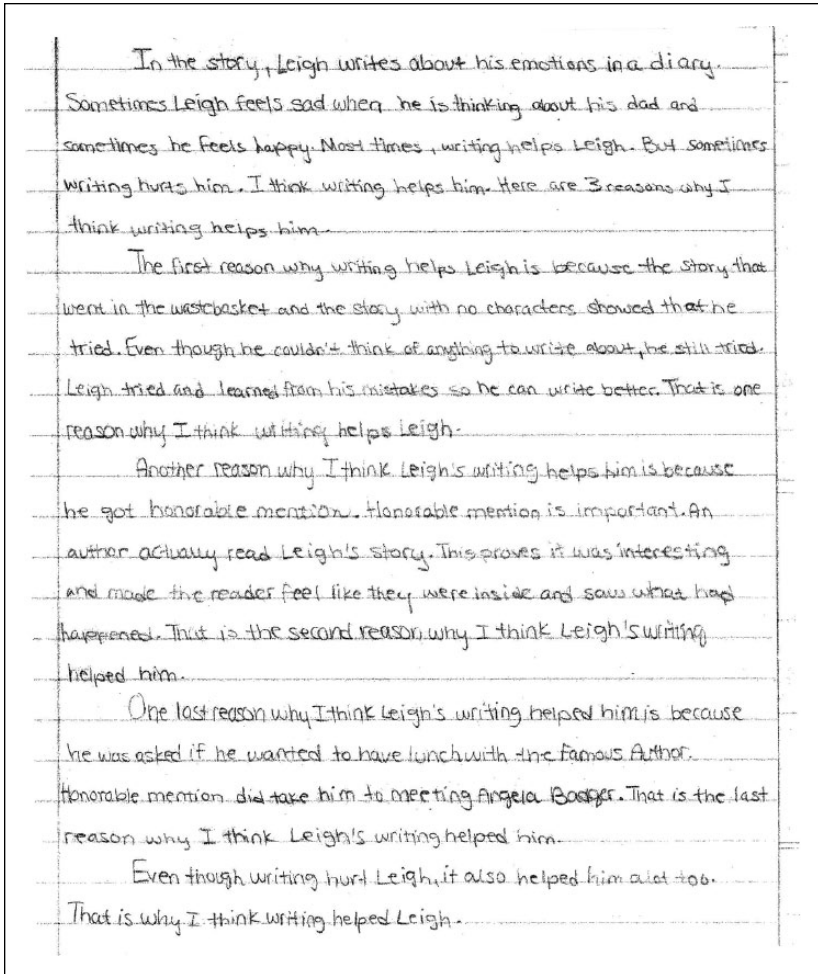 In the story, Leigh writes about his emotions in a diary.
Sometimes Leigh feels sad when he is thinking about his dad and
sometimes he feels happy. Most times, writing helps Leigh. But sometimes
writing hurts him. I think writing helps him. Here are 3 reasons why I
think writing helps him.
The first reason why writing helps Leigh is because the story that
went in the wastebasket and the story with no characters showed that he
tried. Even though he couldn't think of anything to write about, he still tried.
Leigh tried and learned from his mistakes so he can write better. That is one
reason why I think writing helps Leigh.
Another reason why I think Leigh's writing helps him is because
he got honorable mention. Honorable mention is important. An
author actually read Leigh's story. This proves it was interesting
and made the reader feel like they were inside and saw what had
happened. That is the second reason why I think Leigh's writing
helped him.
One last reason why I think Leigh's writing helped him is because
he was asked if he wanted to have lunch with the Famous Author.
Honorable mention did take him to meeting Angela Badger. That is the last
reason why I think Leigh's writing helped him.
Even though writing hurt Leigh, it also helped him alot too.
That is why I think writing helped Leigh.